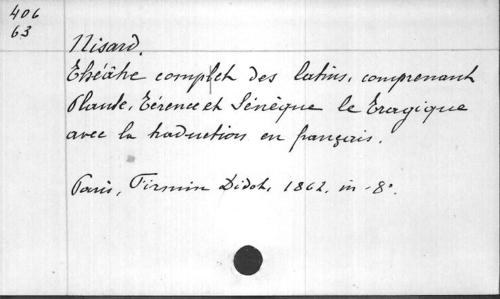 406
63
Nisard.
Théâtre complet des latins, comprenant
Plaute, Térence et Sénèque le Tragique
avec la traduction en français.
Paris, Firmin Didot, 1862, in-8°.